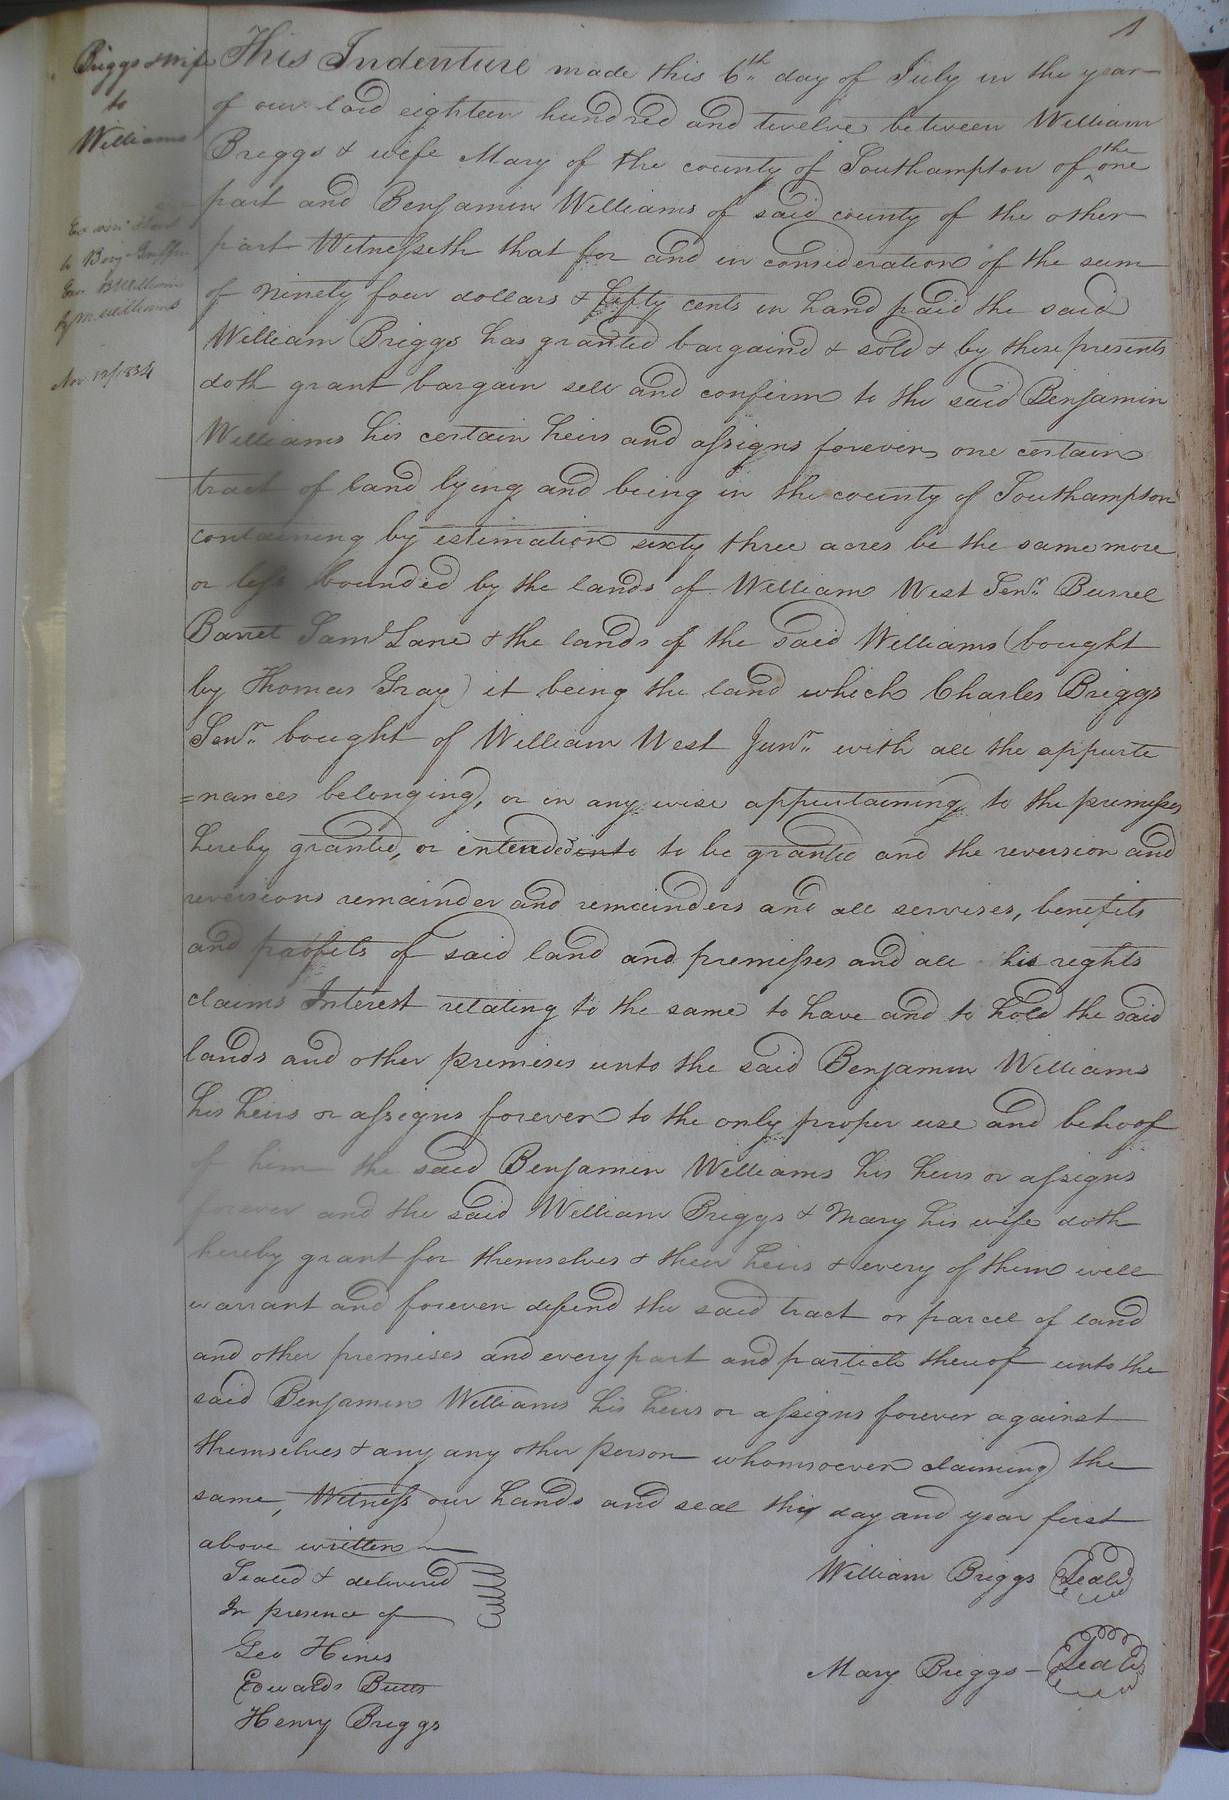 1
Briggs & wife
to
Williams
Ex
to Benj Griffin
Williams
Williams
Nov 12/1834
This Indenture made this 6th day of July in the year
of our lord eighteen hundred and twelve between William
Briggs & wife Mary of the county of Southampton of the one
part and Benjamin Williams of said county of the other
part Witnesseth that for and in consideration of the sum
of Ninety four dollars & fifty cents in hand paid the said
William Briggs has granted bargaind & sold & by these presents
doth grant bargain sell and confirm to the said Benjamin
Williams his certain heirs and assigns forever one certain
tract of land lying and being in the county of Southampton
containing by estimation sixty three acres be the same more
or less bounded by the lands of William West Senr. Burrel
Barret Saml Lane & the lands of the said Williams (bought
by Thomas Gray) it being the land which Charles Briggs
Senr. bought of William West Junr. with all the appurte
=nances belonging, or in any wise appurtaining to the premisses
hereby granted, or intended to be granted and the reversion and
reversions remainder and remainders and all servises, benefits
and profits of said land and premisses and all his rights
claims Interest relating to the same to have and to hold the said
lands and other premises unto the said Benjamin Williams
his heirs or assigns forever to the only proper use and behoof
of him the said Benjamin Williams his heirs or assigns
forever and the said William Briggs & Mary his wife doth
hereby grant for themselves & their heirs & every of them will
warrant and forever defend the said tract or parcel of land
and other premises and every part and particle thereof unto the
said Benjamin Williams his heirs or assigns forever against
themselves & any any other person whomsoever claiming the
same, Witness our hands and seal this day and year first
above written
Sealed & delivered
In presence of
Geo Hines
Edwards Butts
Henry Briggs
William Briggs Seal
Mary Briggs - Seal